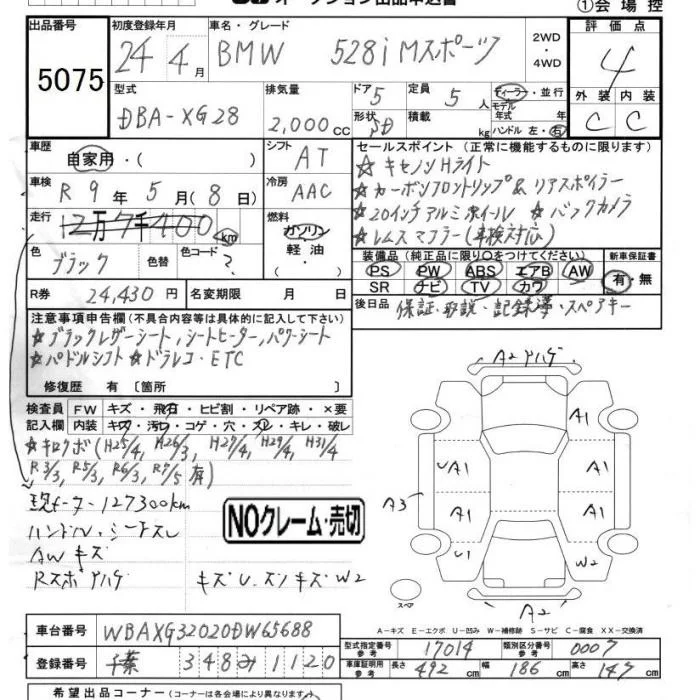 オークション出品申込書
①会場控
出品番号 初度登録年月 車名・グレード 2WD ・4WD 評価点
5075 24年4月 BMW 528i Mスポーツ 4
型式 排気量 ドア 定員 ディーラー・並行 外装 内装
DBA-XG28 2,000cc 5 5人 モデル年式 年 C C
形状 積載 kg ハンドル 左・右
車歴 自家用・( ) シフト AT セールスポイント (正常に機能するものに限ります)
車検 R9年5月(8日) 冷房 AAC ☆キセノンHライト
☆カーボンフロントリップ& リアスポイラー
走行 12万7千400km 燃料 ガソリン 軽油 ( ) ☆20インチアルミホイール ☆バックカメラ
☆レムスマフラー(車検対応)
色 ブラック 色替 色コード ? 装備品 (純正品に限り○をつけてください) 新車保証書
PS PW ABS エアB AW 有・無
SR ナビ TV カワ
R券 24,430円 名変期限 月 日 後日品 保証・取説・記録簿・スペアキー
注意事項申告欄(不具合内容等は具体的に記入して下さい)
☆ブラックレザーシート,シートヒーター,パワーシート
☆パドルシフト ☆ドラレコ・ETC
修復歴 有 〔箇所 〕
検査員記入欄 FW キズ・飛石・ヒビ割・リペア跡・×要
内装 キズ・汚レ・コゲ・穴・スレ・キレ・破レ
☆キロクボ(H25/4, H26/3, H27/4, H29/4, H31/4
R3/3, R5/3, R6/3, R7/5 有)
現メータ・127300km
ハンドル・シートスレ
AWキズ
キズU.ズレキズW2
NOクレーム・売切
A2
A1
UA1 A1
A3 A1 A1
U1 W2
A2
スペア
A-キズ E-エクボ U-凹み W-補修跡 S-サビ C-腐食 XX-交換済
車台番号 WBAXG32020DW65688
型式指定番号 参考 17014 類別区分番号 参考 0007
登録番号 千葉 348 み 1120
車庫証明用 参考 長さ 492cm 幅 186cm 高さ 147cm
希望出品コーナー(コーナーは各会場により異なります)